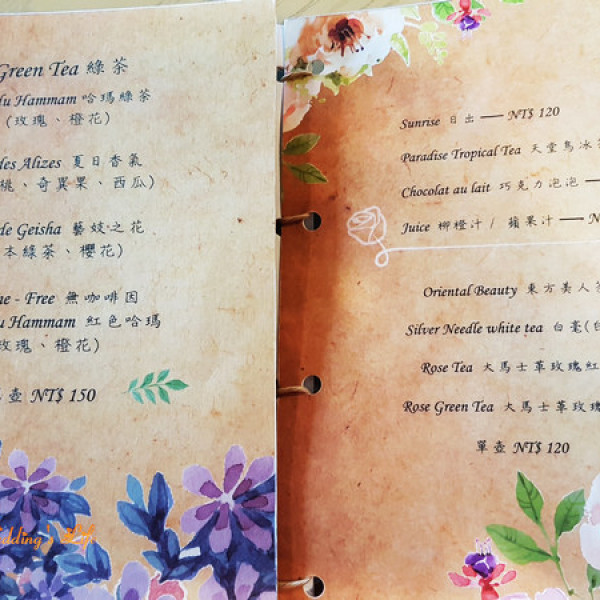 Green Tea 綠茶
du Hammam 哈瑪綠茶
(玫瑰、橙花)
des Alizes 夏日香氣
桃、奇異果、西瓜)
de Geisha 藝妓之花
本綠茶、櫻花)
ne - Free 無咖啡因
u Hammam 紅色哈瑪
玫瑰、橙花)
壺 NT$ 150
Sunrise 日出 — NT$ 120
Paradise Tropical Tea 天堂鳥冰
Chocolat au lait 巧克力泡泡 —
Juice 柳橙汁 / 蘋果汁 — N
Oriental Beauty 東方美人
Silver Needle white tea 白毫(
Rose Tea 大馬士革玫瑰紅
Rose Green Tea 大馬士革玫瑰
單壺 NT$ 120